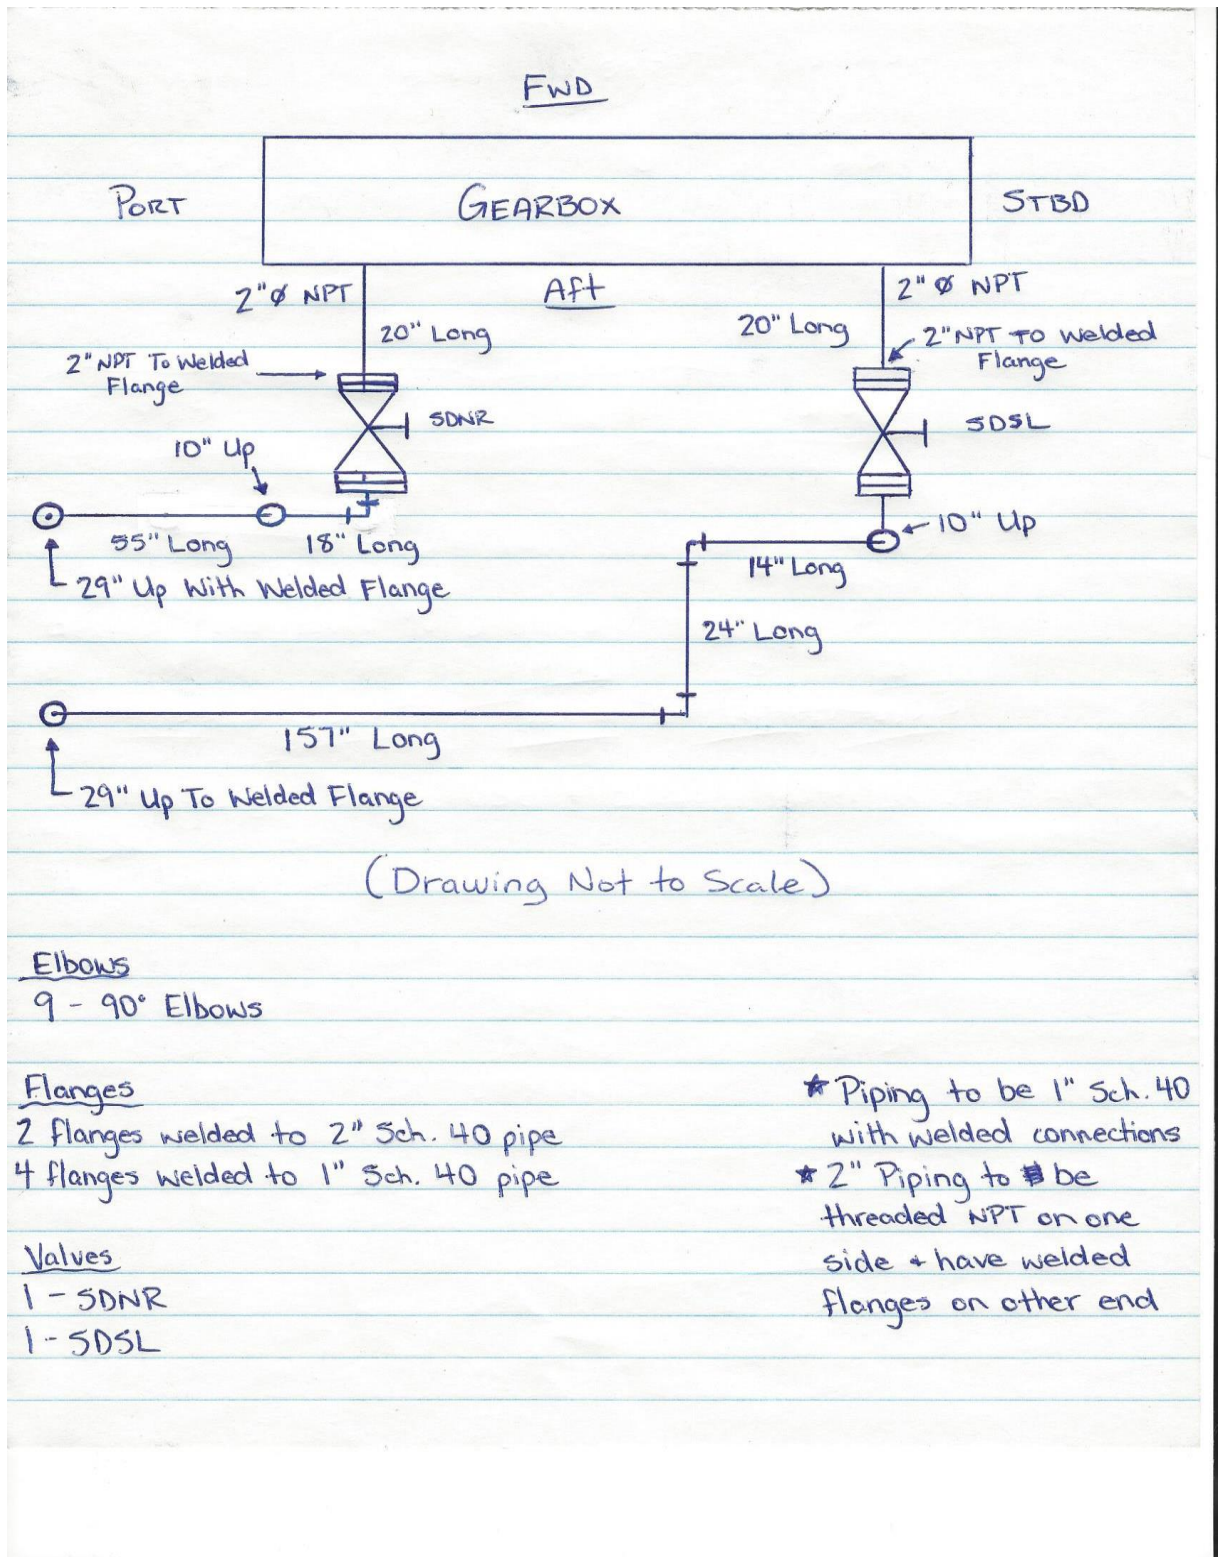 FWD
PORT
GEARBOX
STBD
2"Ø NPT
Aft
2"Ø NPT
20" Long
20" Long
2"NPT To Welded
Flange
2"NPT TO Welded
Flange
SDNR
SDSL
10" Up
10" Up
55" Long
18" Long
14" Long
29" Up With Welded Flange
24" Long
157" Long
29" Up To Welded Flange
(Drawing Not to Scale)
Elbows
9 - 90° Elbows
Flanges
2 flanges welded to 2" Sch. 40 pipe
4 flanges welded to 1" Sch. 40 pipe
Valves
1 - SDNR
1 - SDSL
* Piping to be 1" Sch. 40
with welded connections
* 2" Piping to be
threaded NPT on one
side + have welded
flanges on other end